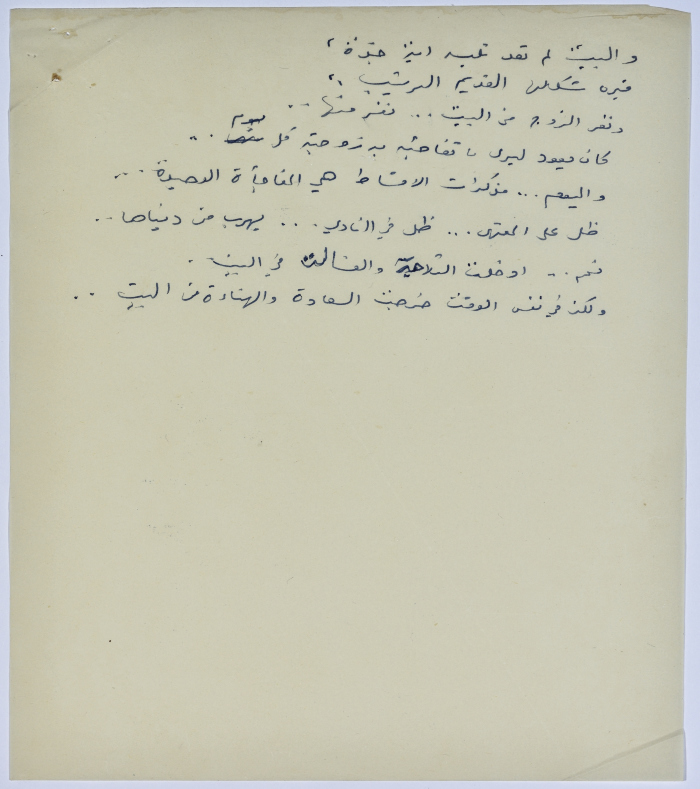 والبيت لم تعد فيه اية جدّة ،
غيره شكلها القديم الرتيب ..
ونفر الزوج من البيت ... نفر منها ..
كان يعود ليرى ما تفاجئه به زوجته كل يوم ..
واليوم ... مذكرات الاقساط هي المفاجأة الوحيدة ...
ظل على المقهى ... ظل في النادي ... يهرب من دنياها ..
نعم ... ادخلت الثلاجة والغسالة في البيت .
ولكن في نفس الوقت خرجت السعادة والهناءة من البيت ..